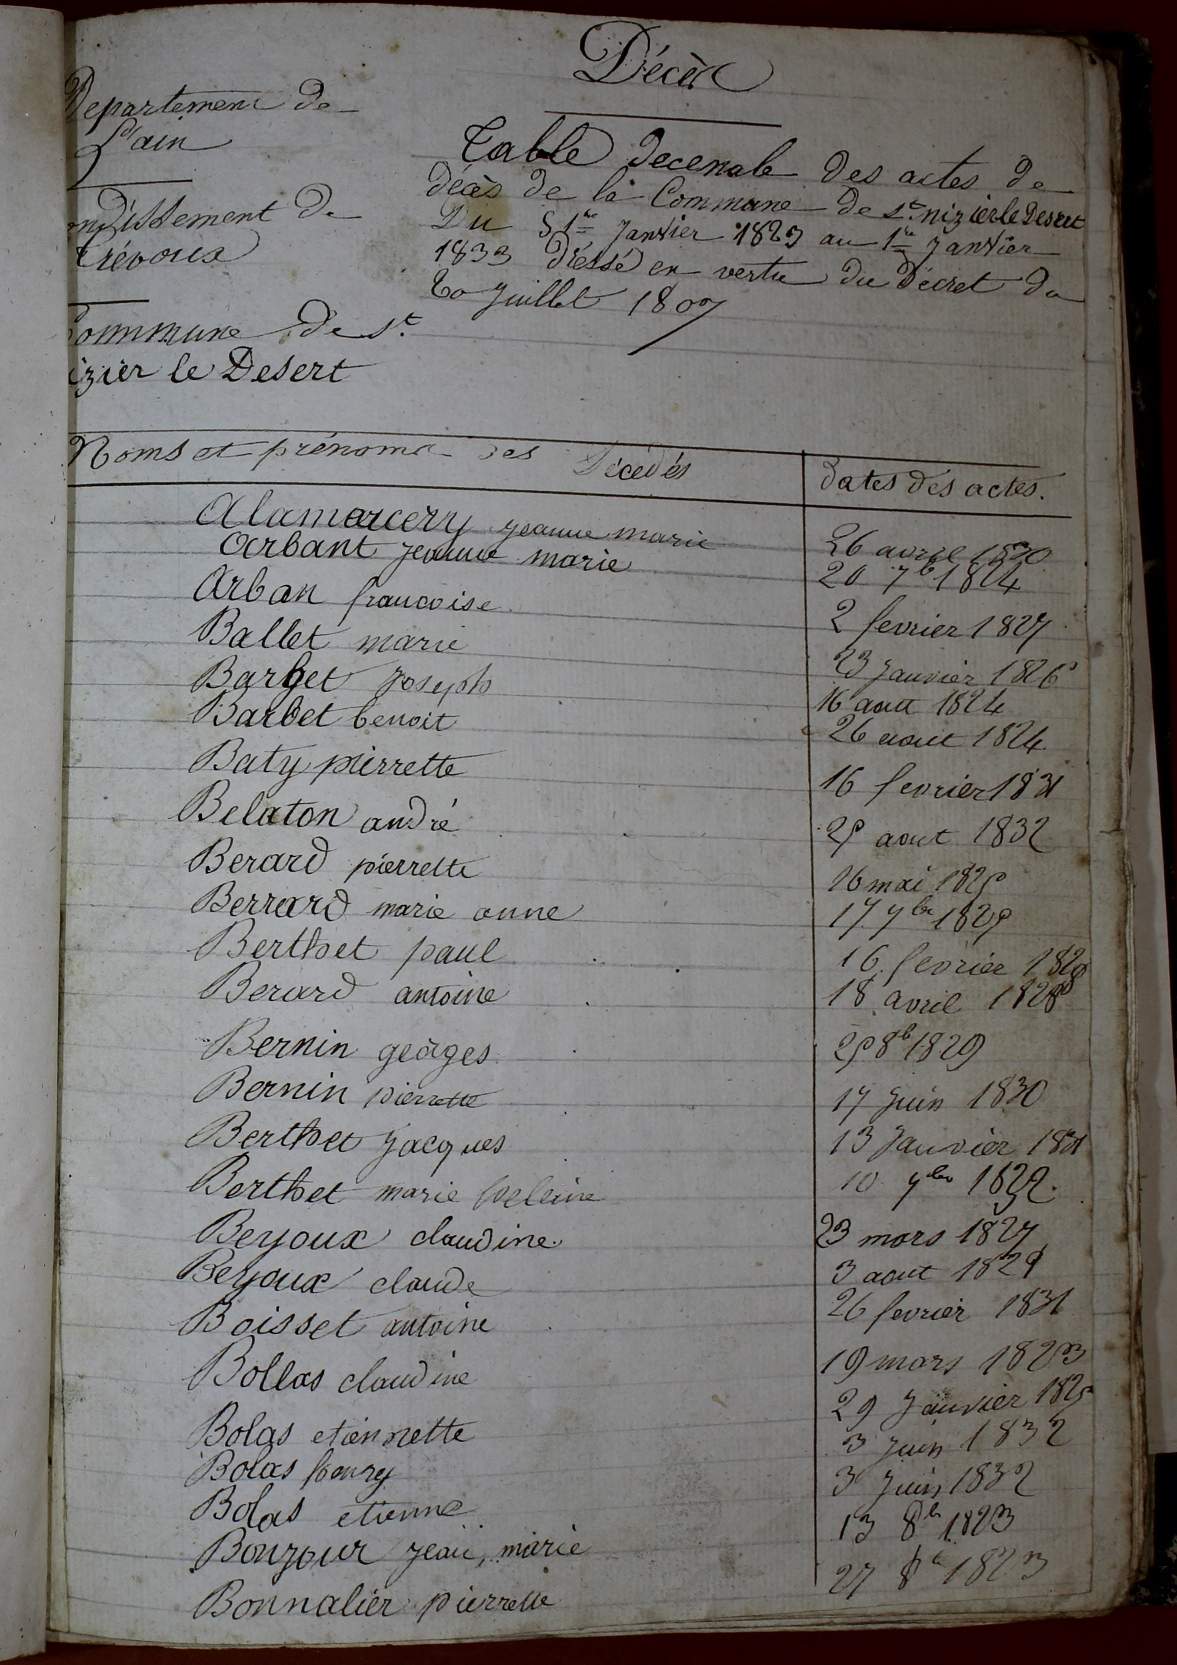 Décès
Departement de
L'ain
ondissement de
Trévoux
ommune de St
izier le Desert
Table decenale des actes de
décès de la Commune de St nizier le Desert
Du 1er Janvier 1823 au 1er Janvier
1833 dressé en vertu du Décret du
20 Juillet 1807
Noms et prénoms des Décédés
dates des actes.
Alamercery jeanne marie
26 avril 1830
Arbant jeanne marie
20 7b 1824
Arban francoise
2 fevrier 1827
Ballet marie
23 Janvier 1826
Barbet Joseph
16 aout 1824
Barbet benoit
26 aout 1824
Baty pierrette
16 fevrier 1831
Belaton andré
25 aout 1832
Berard pierrette
16 mai 1825
Berrard marie anne
17 7bre 1825
Berthet paul
16 fevrier 1828
Berard antoine
18 avril 1828
Bernin georges
25 8b 1829
Bernin pierrette
17 Juin 1830
Berthet Jacques
13 Janvier 1831
Berthet marie heleine
10 1832
Beyoux claudine
23 mars 1827
Beyoux claude
3 aout 1829
Boisset antoine
26 fevrier 1831
Bollas claudine
19 mars 1823
Bolas etiennette
29 Janvier 1825
Bolas henry
3 Juin 1832
Bolas etienne
3 Juin 1832
Bonjour jean, marie
13 8b 1823
Bonnalier pierrette
27 8b 1823